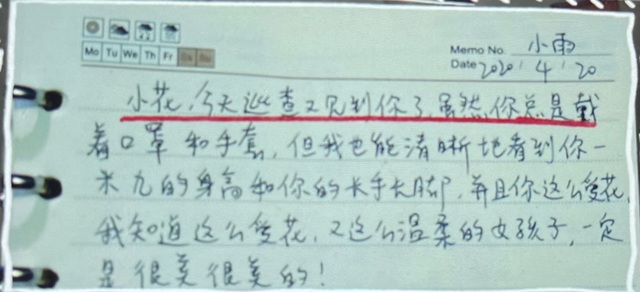 Memo No. 小雨
Mo Tu We Th Fr Sa Su
Date 2020 . 4 . 20
小花，今天巡查又见到你了，虽然，你总是戴
着口罩和手套，但我也能清晰地看到你一
米九的身高和你的长手长脚，并且你这么爱花，
我知道这么爱花，又这么温柔的女孩子，一定
是很美很美的！